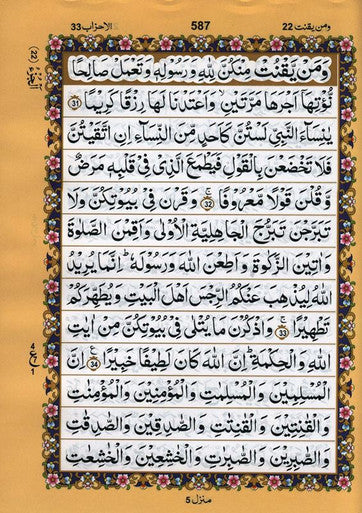 الاحزاب ٣٣
587
ومن يقنت 22
وَ مَنۡ يَّقۡنُتۡ مِنۡكُنَّ لِلّٰهِ وَ رَسُوۡلِهٖ وَ تَعۡمَلۡ صَالِحًا
نُّؤۡتِهَاۤ اَجۡرَهَا مَرَّتَيۡنِۙ وَ اَعۡتَدۡنَا لَهَا رِزۡقًا كَرِيۡمًا ﴿31﴾
يٰنِسَآءَ النَّبِىِّ لَسۡتُنَّ كَاَحَدٍ مِّنَ النِّسَآءِ اِنِ اتَّقَيۡتُنَّ
فَلَا تَخۡضَعۡنَ بِالۡقَوۡلِ فَيَطۡمَعَ الَّذِىۡ فِىۡ قَلۡبِهٖ مَرَضٌ
وَّ قُلۡنَ قَوۡلًا مَّعۡرُوۡفًا ﴿32﴾ وَ قَرۡنَ فِىۡ بُيُوۡتِكُنَّ وَ لَا
تَبَرَّجۡنَ تَبَرُّجَ الۡجَاهِلِيَّةِ الۡاُوۡلٰى وَ اَقِمۡنَ الصَّلٰوةَ
وَ اٰتِيۡنَ الزَّكٰوةَ وَ اَطِعۡنَ اللّٰهَ وَ رَسُوۡلَهٗ ؕ اِنَّمَا يُرِيۡدُ
اللّٰهُ لِيُذۡهِبَ عَنۡكُمُ الرِّجۡسَ اَهۡلَ الۡبَيۡتِ وَ يُطَهِّرَكُمۡ
تَطۡهِيۡرًا ﴿33﴾ وَ اذۡكُرۡنَ مَا يُتۡلٰى فِىۡ بُيُوۡتِكُنَّ مِنۡ اٰيٰتِ
اللّٰهِ وَ الۡحِكۡمَةِ ؕ اِنَّ اللّٰهَ كَانَ لَطِيۡفًا خَبِيۡرًا ﴿34﴾ اِنَّ
الۡمُسۡلِمِيۡنَ وَ الۡمُسۡلِمٰتِ وَ الۡمُؤۡمِنِيۡنَ وَ الۡمُؤۡمِنٰتِ
وَ الۡقٰنِتِيۡنَ وَ الۡقٰنِتٰتِ وَ الصّٰدِقِيۡنَ وَ الصّٰدِقٰتِ
وَ الصّٰبِرِيۡنَ وَ الصّٰبِرٰتِ وَ الۡخٰشِعِيۡنَ وَ الۡخٰشِعٰتِ
منزل 5